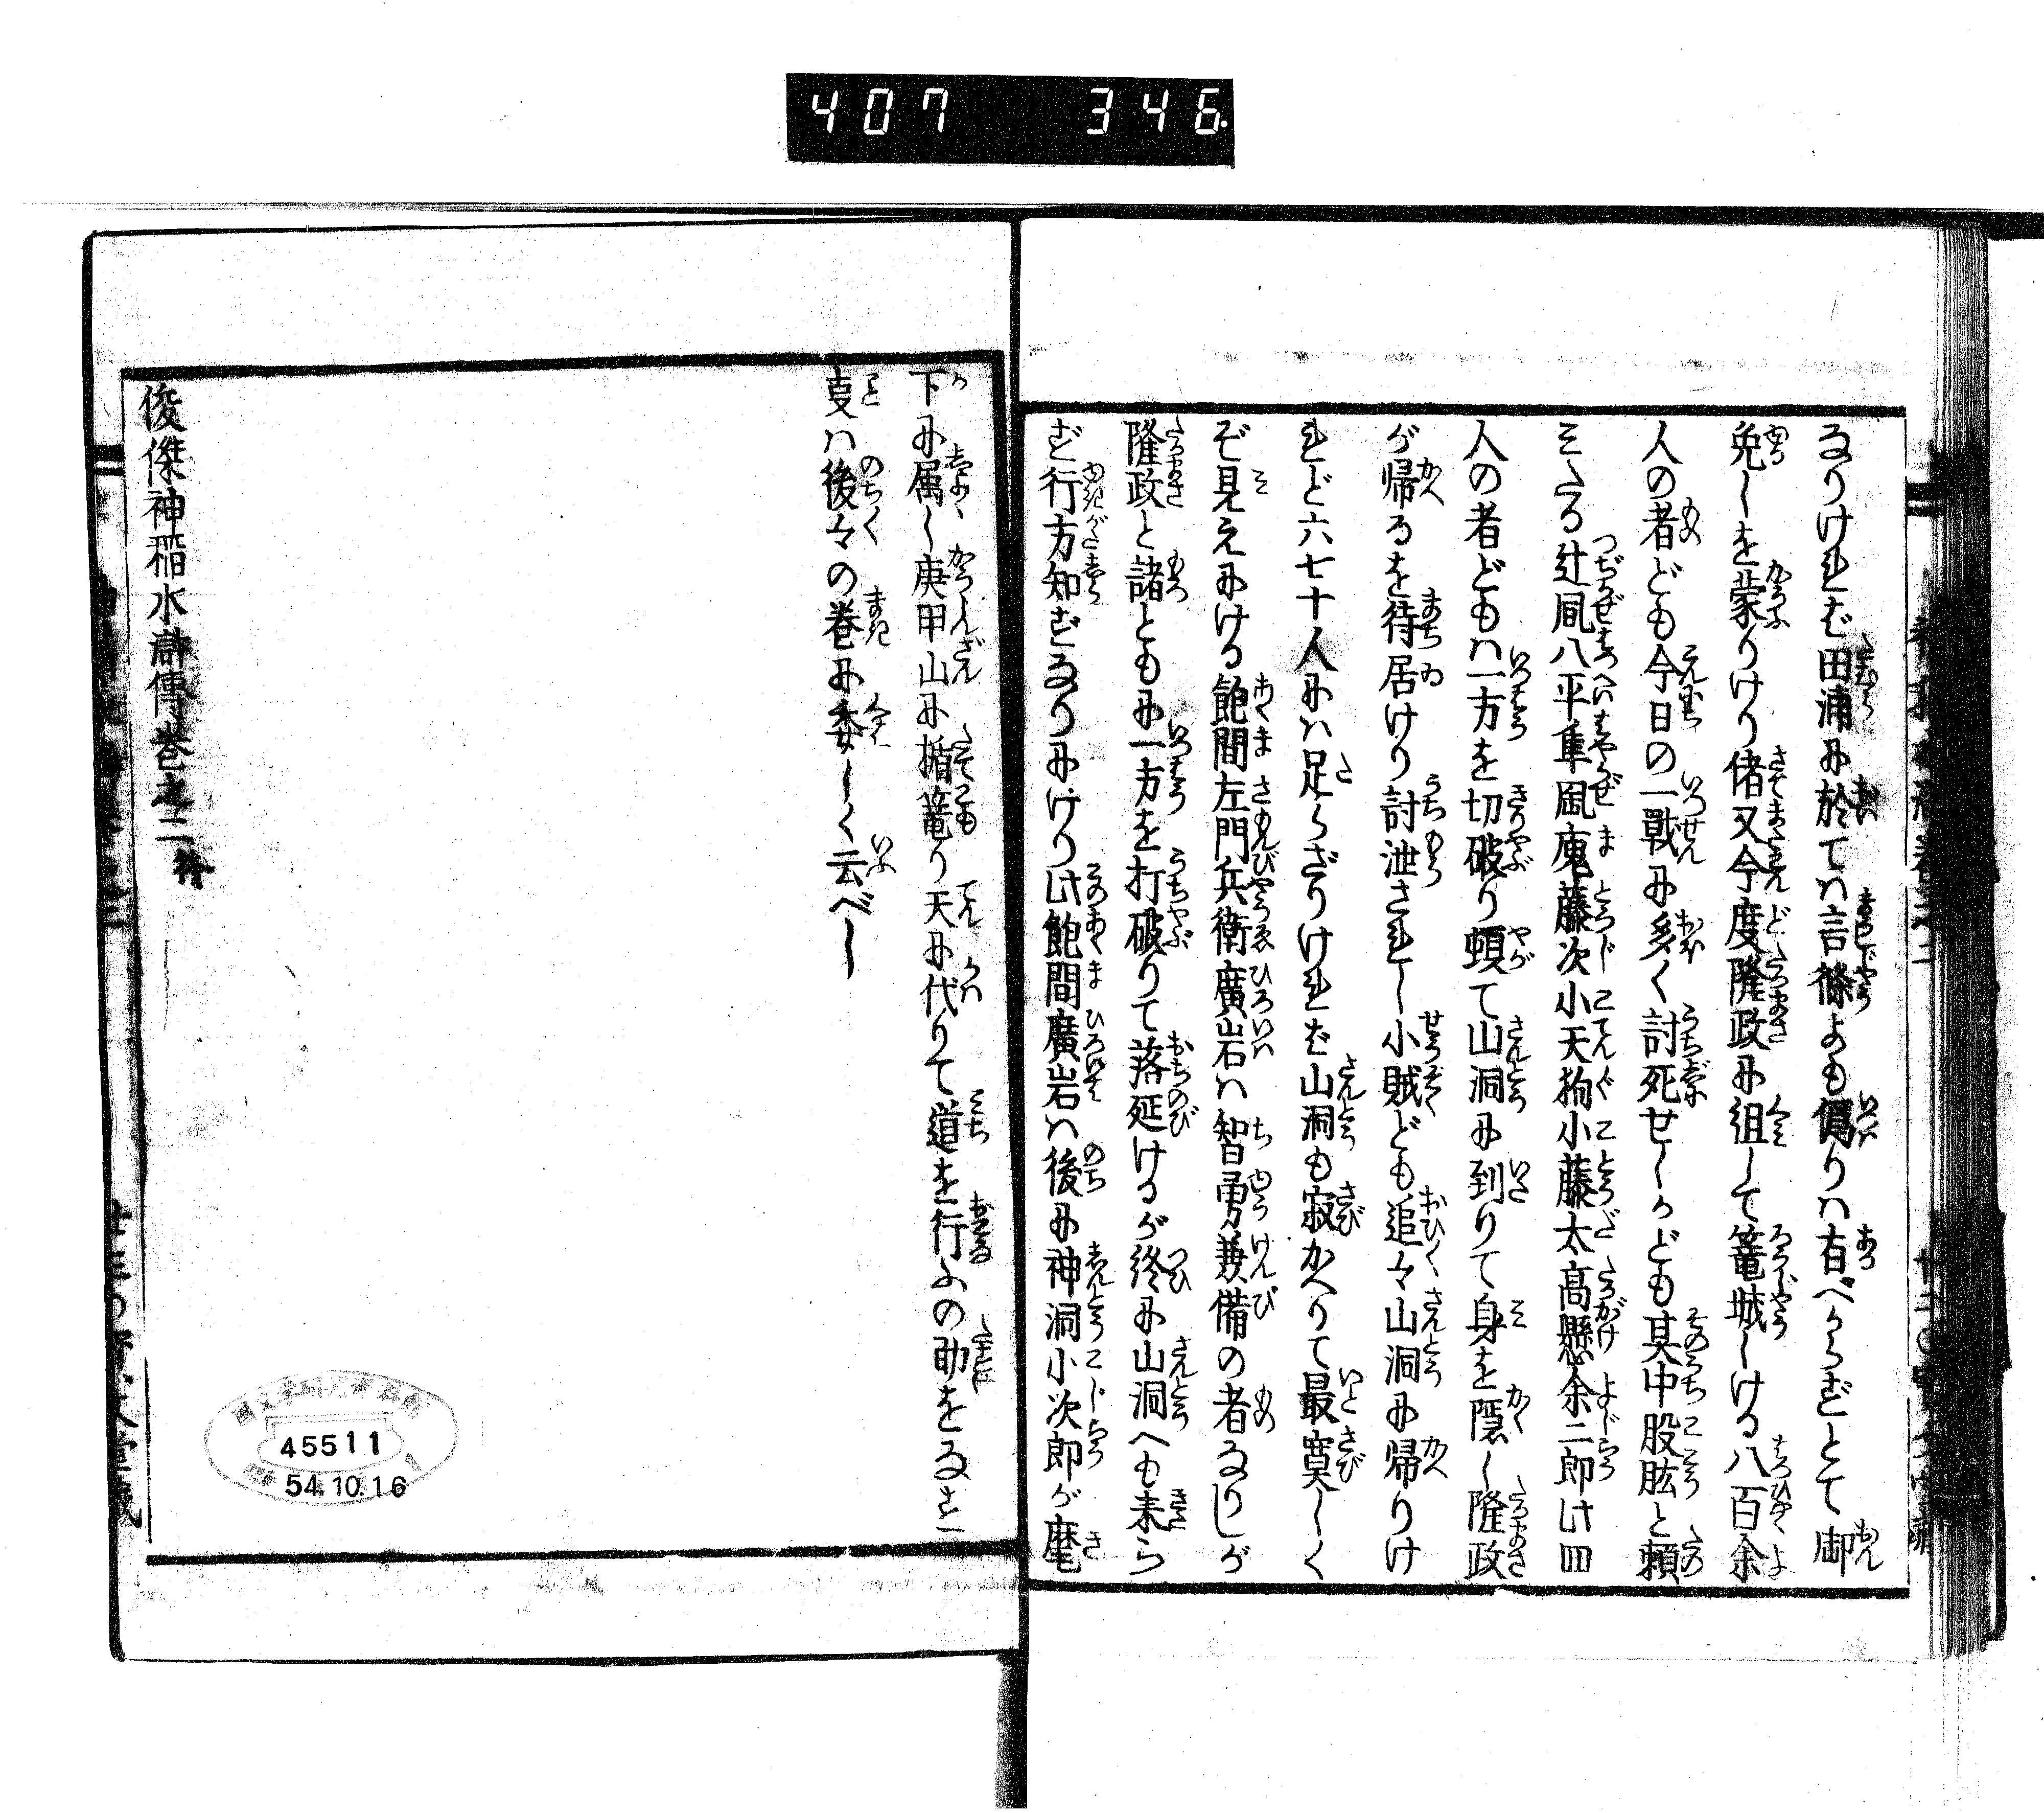 407 346.
なりければ田浦に於ては言條よも偽りは有べからずとて御
免しを蒙りけり偖又今度隆政に組して篭城しける八百余
人の者ども今日の一戦に多く討死せしかども其中股肱と頼
みたる辻風八平隼風鬼藤次小天狗小藤太高懸余二郎此四
人の者どもは一方を切破り頓て山洞に到りて身を隠し隆政
が帰るを待居けり討泄されし小賊ども追々山洞に帰りけ
れど六七十人には足らざりければ山洞も寂かへりて最寞しく
ぞ見えにける飽間左門兵衛廣岩は智勇兼備の者なりしが
隆政と諸ともに一方を打破りて落延けるが終に山洞へも来ら
ず行方知ずなりにけり此飽間廣岩は後に神洞小次郎が麾
下に属し庚申山に楯篭り天に代りて道を行ふの助をなす
叓は後々の巻に委しく云べし
俊傑神稲水滸傳巻之二終
45511
54.10.16